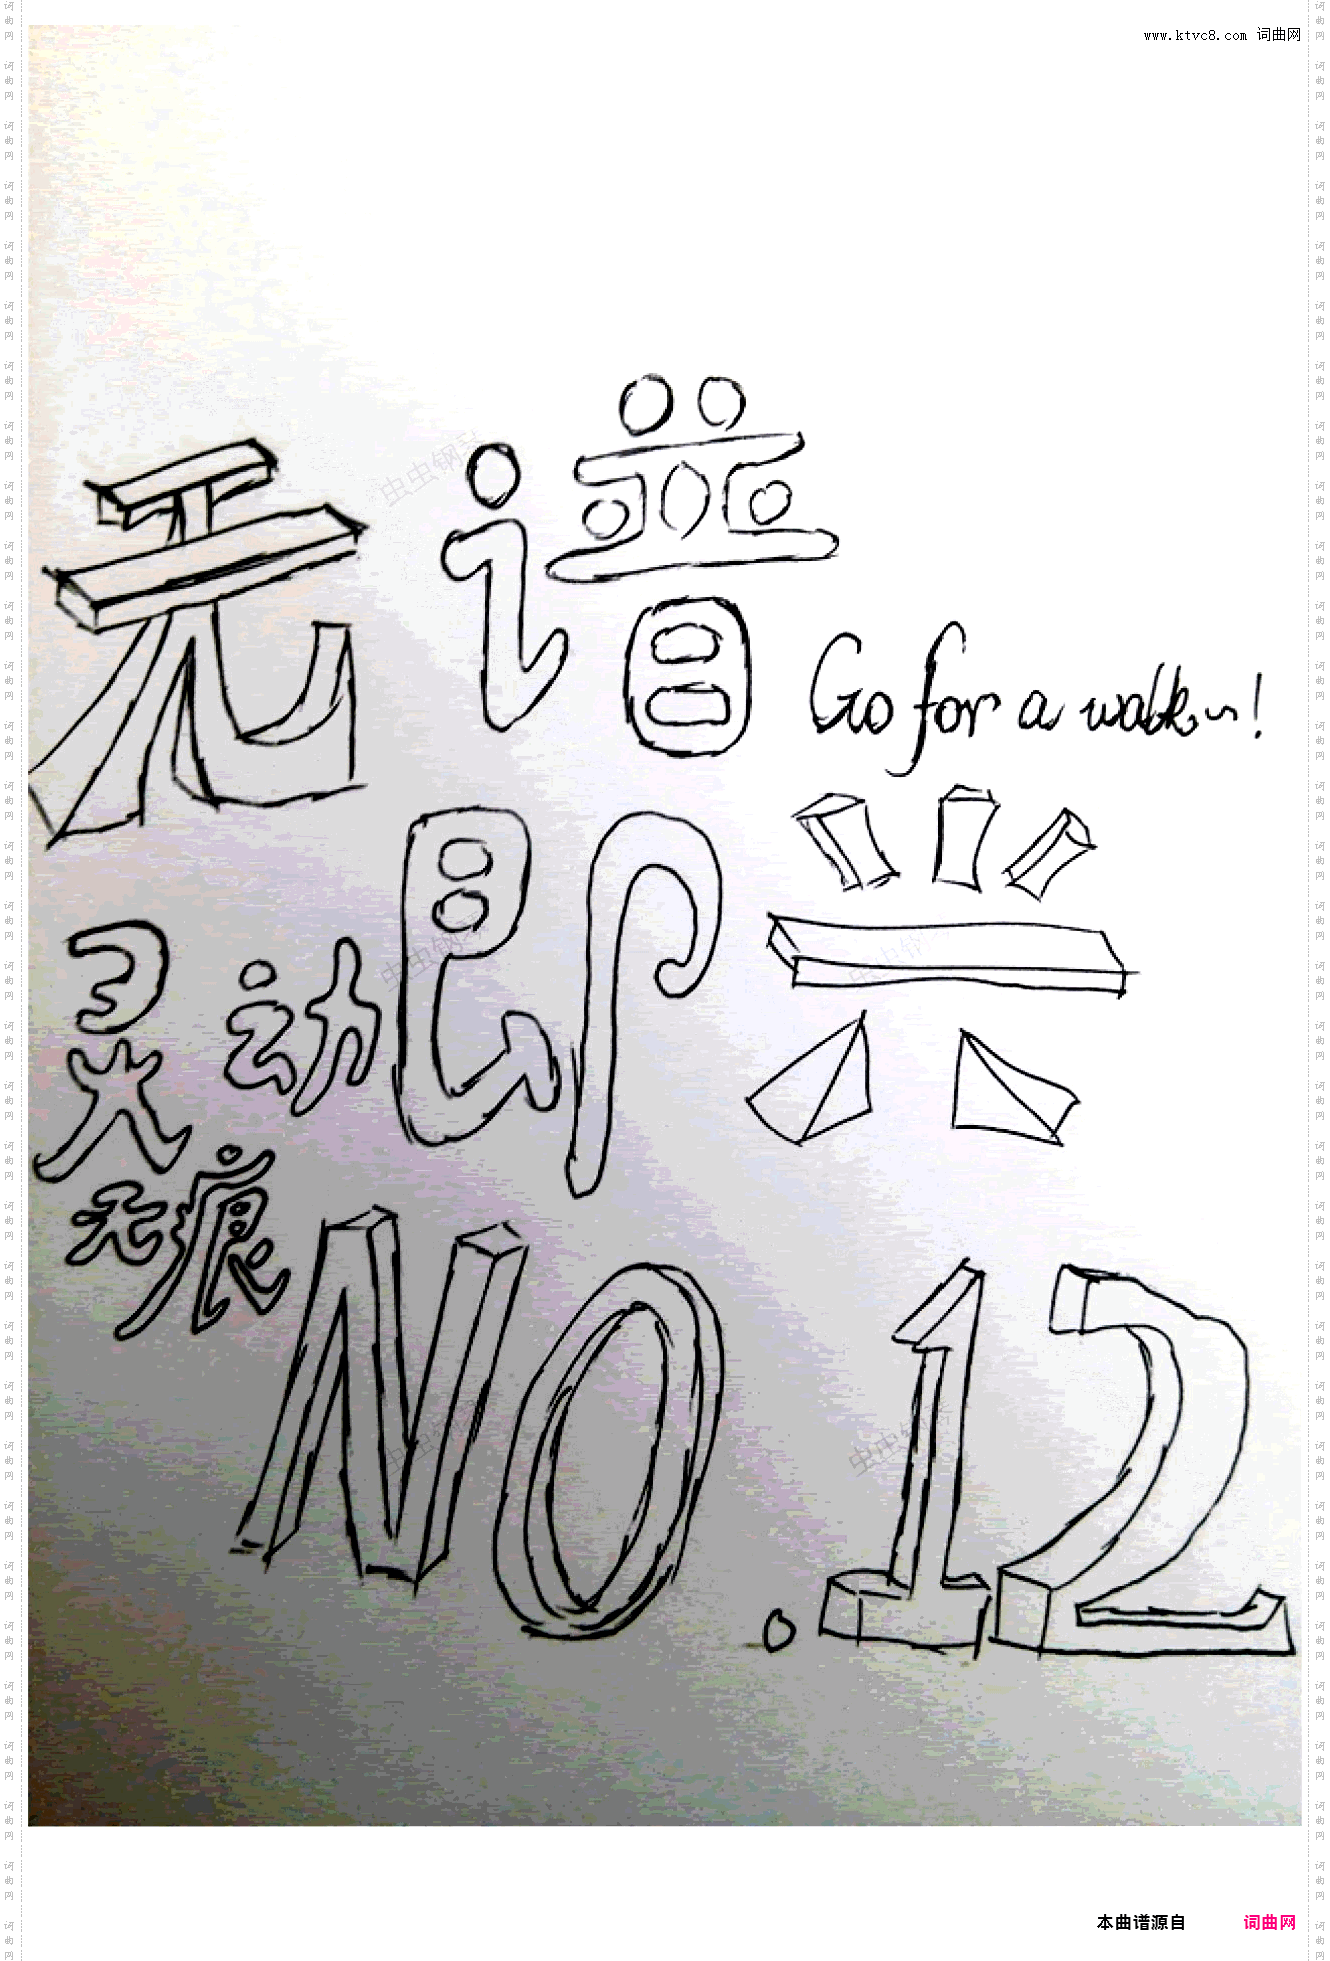 www.ktvc8.com 词曲网
无谱
Go for a walk
即兴
灵动
无痕
NO.12
虫虫钢琴
本曲谱源自 词曲网